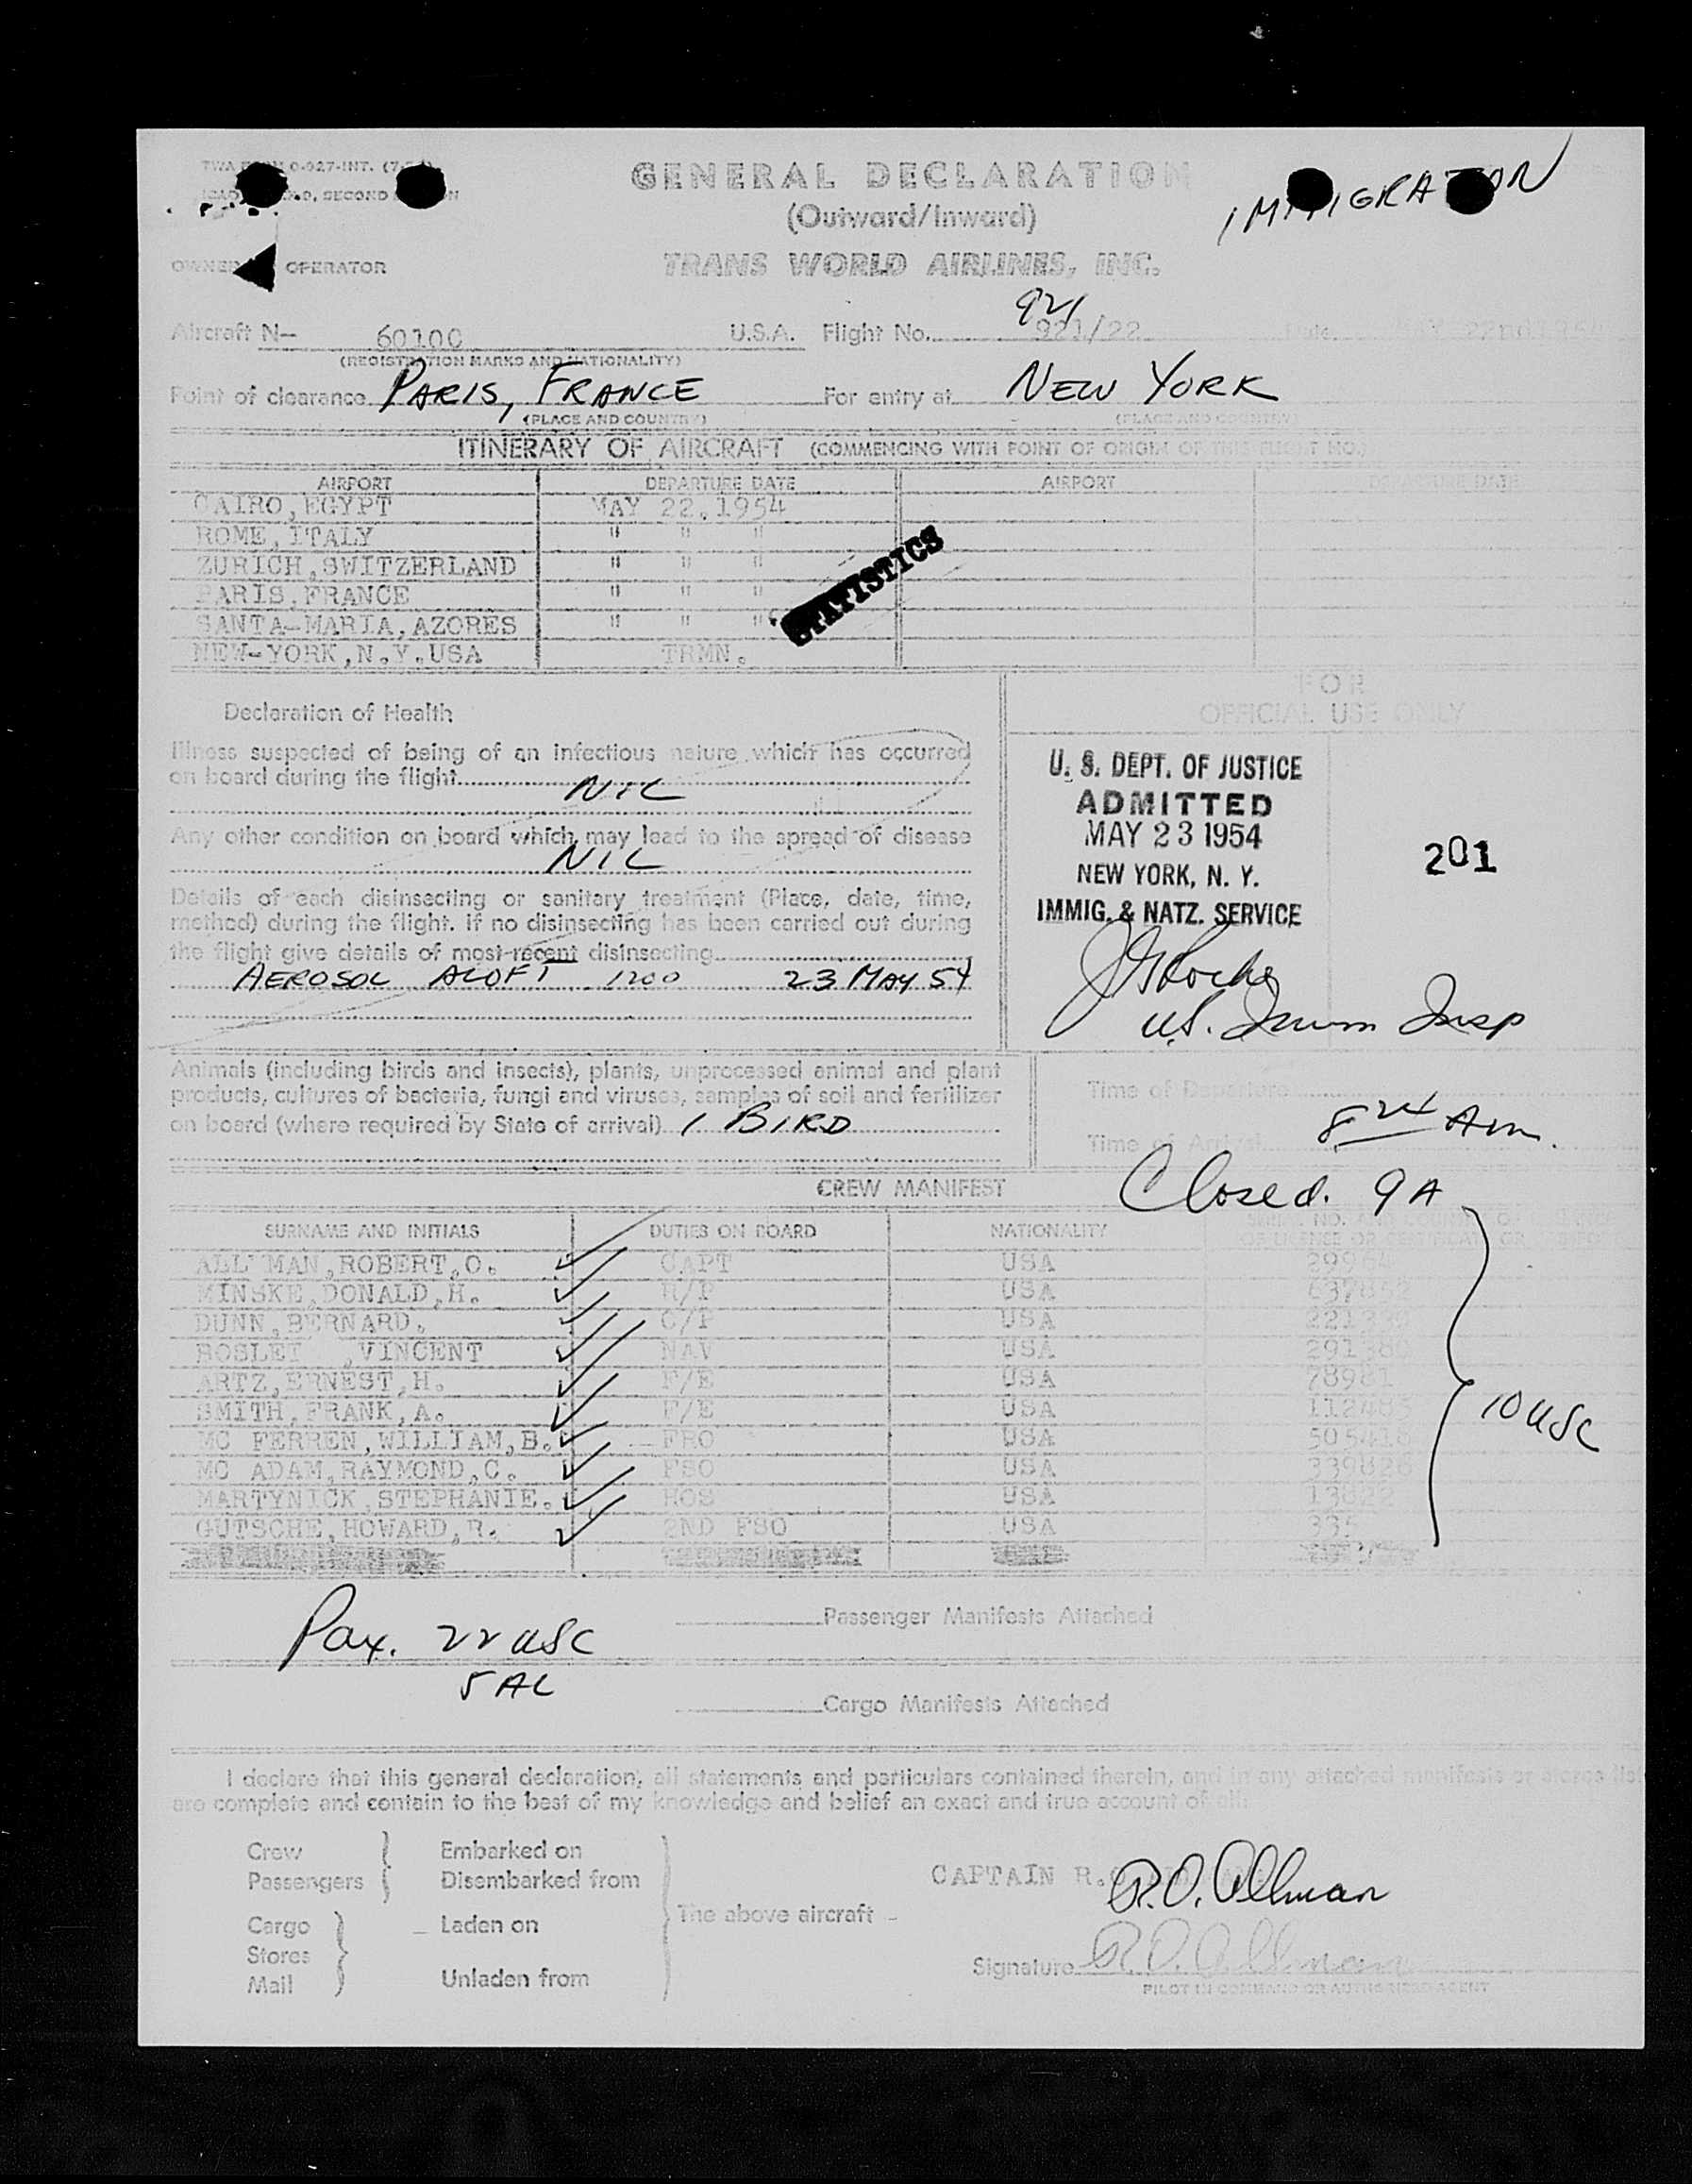 GENERAL DECLARATION
(Outward/Inward)
IMMIGRATION
OPERATOR
TRANS WORLD AIRLINES, INC.
921
Aircraft N— 60100 U.S.A. Flight No. 921/22 Date MAY 22nd 1954
(REGISTRATION MARKS AND NATIONALITY)
Point of clearance PARIS, FRANCE For entry at NEW YORK
(PLACE AND COUNTRY) (PLACE AND COUNTRY)
ITINERARY OF AIRCRAFT (COMMENCING WITH POINT OF ORIGIN OF THIS FLIGHT NO.)
AIRPORT DEPARTURE DATE AIRPORT DEPARTURE DATE
CAIRO,EGYPT MAY 22.1954
ROME, ITALY " " "
ZURICH,SWITZERLAND " " "
PARIS,FRANCE " " "
SANTA-MARIA,AZORES " " "
NEW-YORK,N.Y.USA TRMN.
STATISTICS
FOR
OFFICIAL USE ONLY
Declaration of Health
Illness suspected of being of an infectious nature which has occurred
on board during the flight NIL
Any other condition on board which may lead to the spread of disease
NIL
Details of each disinsecting or sanitary treatment (Place, date, time,
method) during the flight. If no disinsecting has been carried out during
the flight give details of most recent disinsecting
AEROSOL ALOFT 1200 23 MAY 54
U. S. DEPT. OF JUSTICE
ADMITTED
MAY 23 1954
NEW YORK, N. Y.
IMMIG. & NATZ. SERVICE
201
U.S. Immn Insp
Animals (including birds and insects), plants, unprocessed animal and plant
products, cultures of bacteria, fungi and viruses, samples of soil and fertilizer
on board (where required by State of arrival) 1 BIRD
Time of Departure
Time of Arrival 8 24 Am.
Closed. 9 A
CREW MANIFEST
SURNAME AND INITIALS DUTIES ON BOARD NATIONALITY
ALLMAN,ROBERT,O. CAPT USA
MINSKE,DONALD,H. R/P USA
DUNN,BERNARD. C/P USA
VINCENT NAV USA
ARTZ,ERNEST,H. F/E USA 78981
SMITH,FRANK,A. F/E USA
MC FERREN,WILLIAM,B. FRO USA
MC ADAM,RAYMOND,C. FSO USA 339826
MARTYNICK,STEPHANIE. HOS USA
GUTSCHE,HOWARD,R. 2ND FSO USA 335
10 USC
Pax. 22 USC
5 AL
Passenger Manifests Attached
Cargo Manifests Attached
I declare that this general declaration, all statements and particulars contained therein, and in any attached manifests or stores list
are complete and contain to the best of my knowledge and belief an exact and true account of all:
Crew Embarked on
Passengers Disembarked from
Cargo Laden on
Stores
Mail Unladen from
The above aircraft
CAPTAIN R.O. ALLMAN
R.O. Allman
Signature R.O. Allman
PILOT IN COMMAND OR AUTHORISED AGENT